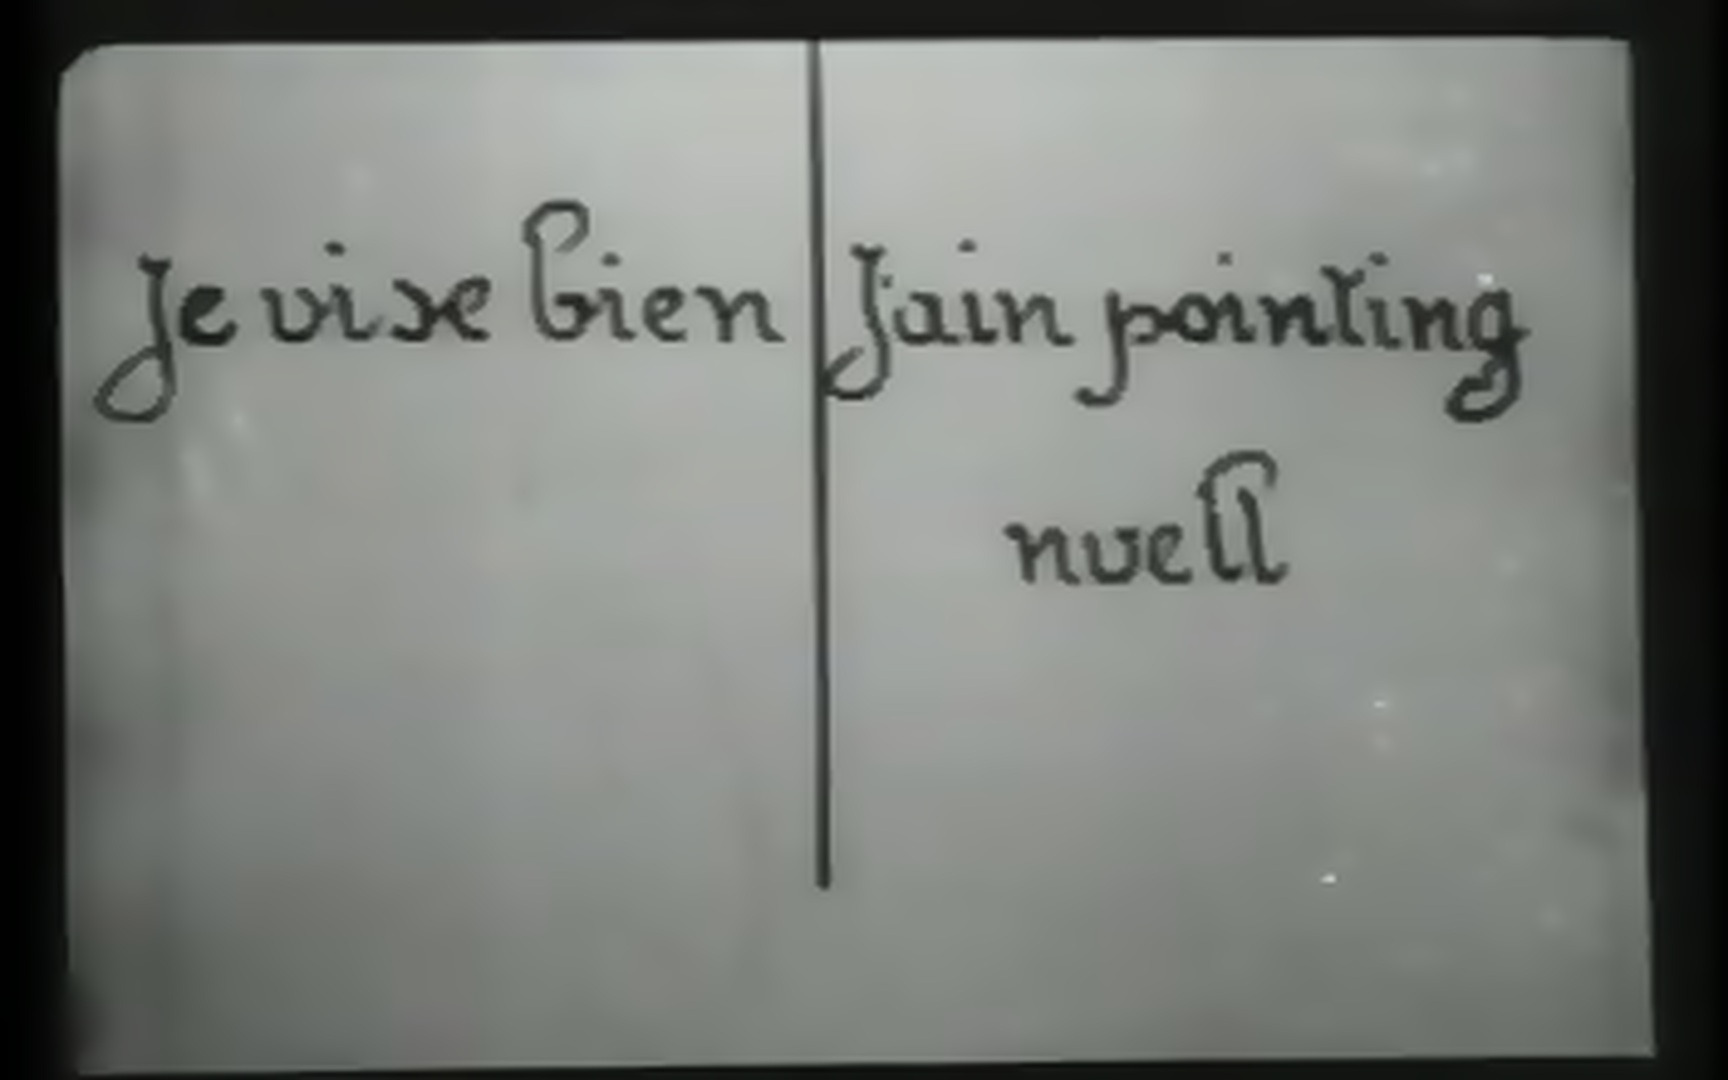 Je vise bien
Jain pointing
nvell